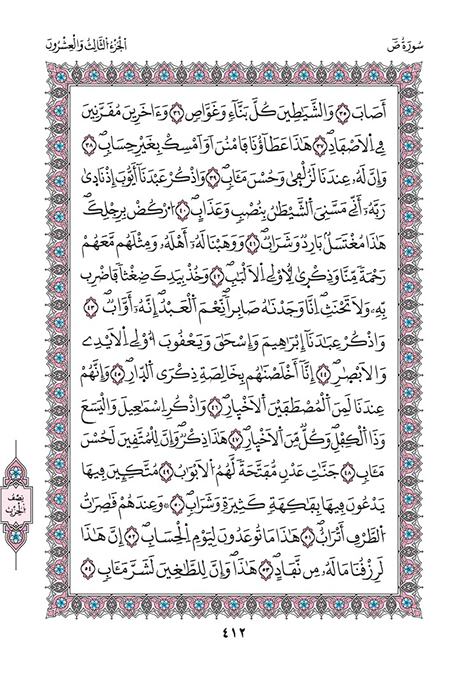 سُورَةُ صٓ
الجُزْءُ الثَّالِثُ وَالْعِشْرُونَ
أَصَابَ ۝٣٥ وَالشَّيَٰطِينَ كُلَّ بَنَّآءٖ وَغَوَّاصٖ ۝٣٦ وَءَاخَرِينَ مُقَرَّنِينَ
فِي اِلَاصْفَادِ ۝٣٧ هَٰذَا عَطَآؤُنَا فَامْنُنَ اَوَ اَمْسِكْ بِغَيْرِ حِسَابٖ ۝٣٨
وَإِنَّ لَهُۥ عِندَنَا لَزُلْفَىٰ وَحُسْنَ مَـَٔابٖ ۝٣٩ وَاذْكُرْ عَبْدَنَآ أَيُّوبَ إِذْ نَادَىٰ
رَبَّهُۥٓ أَنِّے مَسَّنِيَ اَلشَّيْطَٰنُ بِنُصْبٖ وَعَذَابٍ ۝٤٠ اُرْكُضْ بِرِجْلِكَ
هَٰذَا مُغْتَسَلُۢ بَارِدٞ وَشَرَابٞ ۝٤١ وَوَهَبْنَا لَهُۥٓ أَهْلَهُۥ وَمِثْلَهُم مَّعَهُمْ
رَحْمَةٗ مِّنَّا وَذِكْرَىٰ لِأُوْلِے اِلَالْبَٰبِ ۝٤٢ وَخُذْ بِيَدِكَ ضِغْثاٗ فَاضْرِب
بِّهِۦ وَلَا تَحْنَثِ اِنَّا وَجَدْنَٰهُ صَابِراٗ نِّعْمَ اَلْعَبْدُ إِنَّهُۥٓ أَوَّابٞ ۝٤٣
وَاذْكُرْ عِبَٰدَنَآ إِبْرَٰهِيمَ وَإِسْحَٰقَ وَيَعْقُوبَ أُوْلِے اِلَايْدِے
وَالَابْصٰ۪رِ ۝٤٤ إِنَّآ أَخْلَصْنَٰهُم بِخَالِصَةِ ذِكْرَى اَلدّ۪ارِ ۝٤٥ وَإِنَّهُمْ
عِندَنَا لَمِنَ اَلْمُصْطَفَيْنَ اَلَاخْي۪ارِ ۝٤٦ وَاذْكُرِ اِسْمَٰعِيلَ وَالْيَسَعَ
وَذَا اَلْكِفْلِ وَكُلّٞ مِّنَ اَلَاخْي۪ارِ ۝٤٧ هَٰذَا ذِكْرٞ وَإِنَّ لِلْمُتَّقِينَ لَحُسْنَ
مَـَٔابٖ ۝٤٨ جَنَّٰتِ عَدْنٖ مُّفَتَّحَةٗ لَّهُمُ اَلَابْوَٰبُ ۝٤٩ مُتَّكِـِٕينَ فِيهَا
يَدْعُونَ فِيهَا بِفَٰكِهَةٖ كَثِيرَةٖ وَشَرَابٖ ۝٥٠ وَعِندَهُمْ قَٰصِرَٰتُ
اُلطَّرْفِ أَتْرَابٌ ۝٥١ هَٰذَا مَا تُوعَدُونَ لِيَوْمِ اِلْحِسَابِ ۝٥٢ إِنَّ هَٰذَا
لَرِزْقُنَا مَا لَهُۥ مِن نَّفَادٍ ۝٥٣ هَٰذَا وَإِنَّ لِلطَّٰغِينَ لَشَرَّ مَـَٔابٖ ۝٥٤
نِصْف
الحِزْب
٤١٢